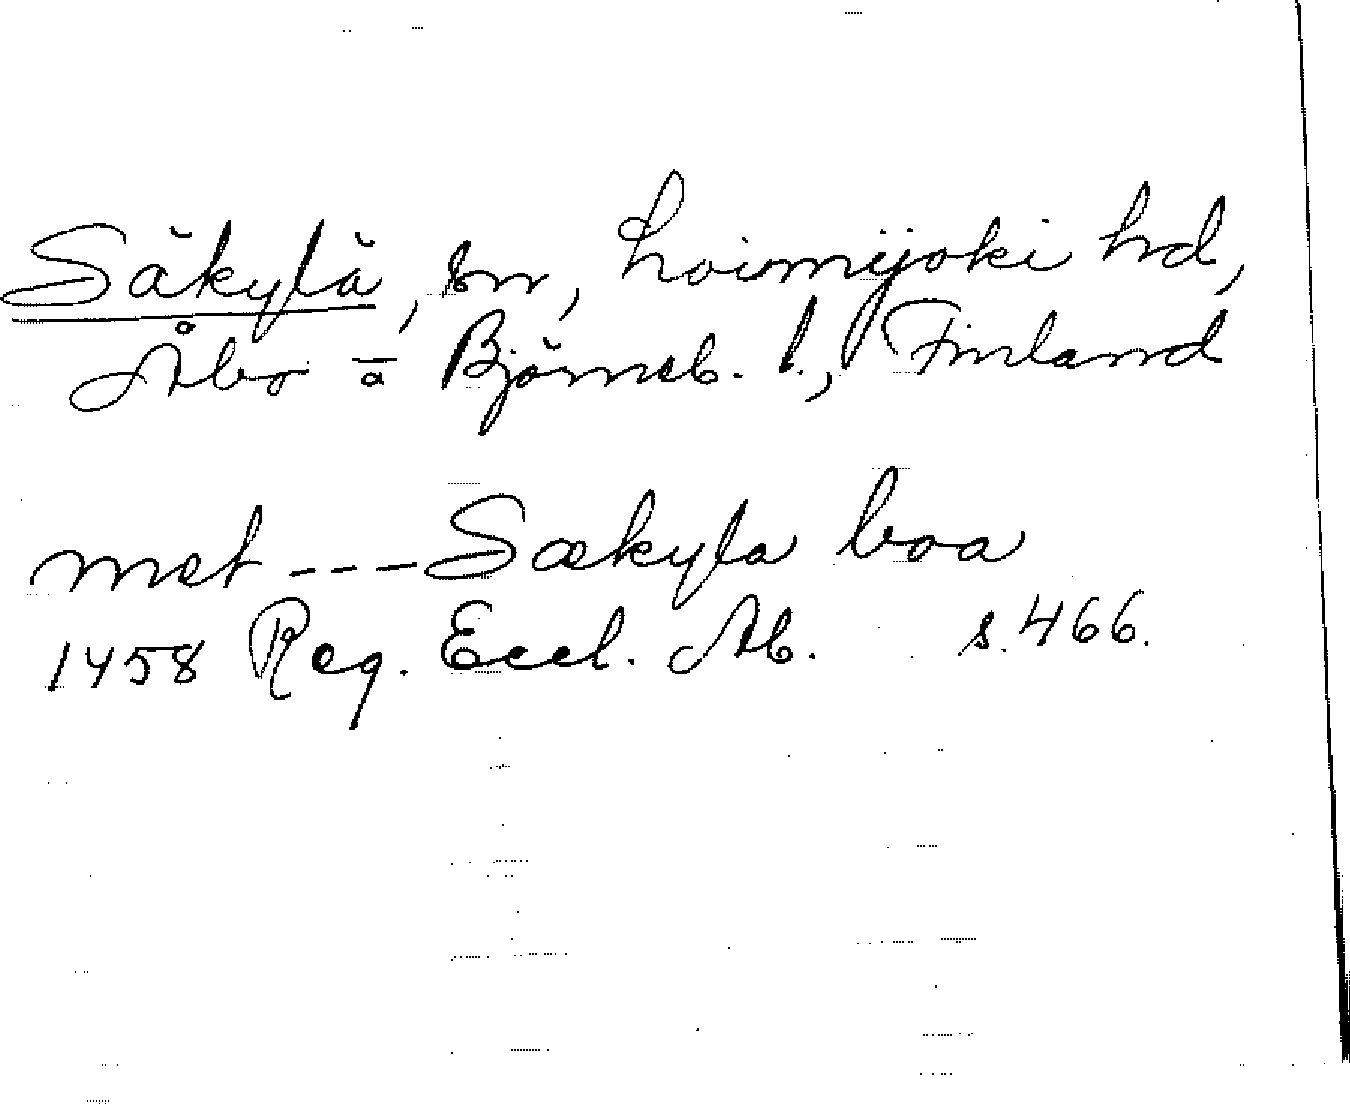 Säkylä, sn, Loimijoki hd,
Åbo = a Björneb. l., Finland
met --- Sækyla boa
1458 Reg. Eccl. Ab. s. 466.